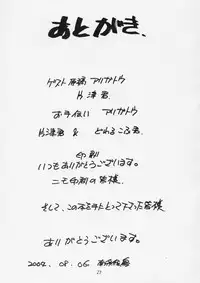 あとがき、
ゲスト原稿アリガトウ
片津君
お手伝いアリガトウ
片津君 & どれみころふ君
印刷
いつもありがとうございます。
ニモ印刷の皆様
そして、この本を手にとって下さった皆様
ありがとうございます。
2002. 08. 06.
23